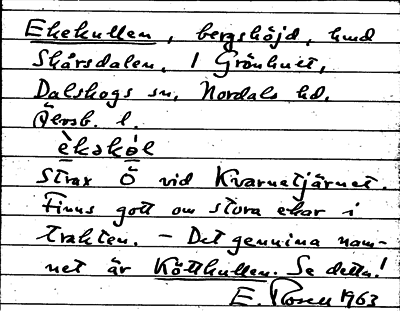 Ekekullen, bergshöjd, hmd
Skårsdalen, i Grönhult,
Dalskogs sn, Nordals hd.
Älvsb. l.
èkəkə́l
Strax Ö vid Kvarnetjärnet.
Finns gott om stora ekar i
trakten. – Det genuina nam-
net är Kåtthullen. Se detta!
E. Rosell 1963